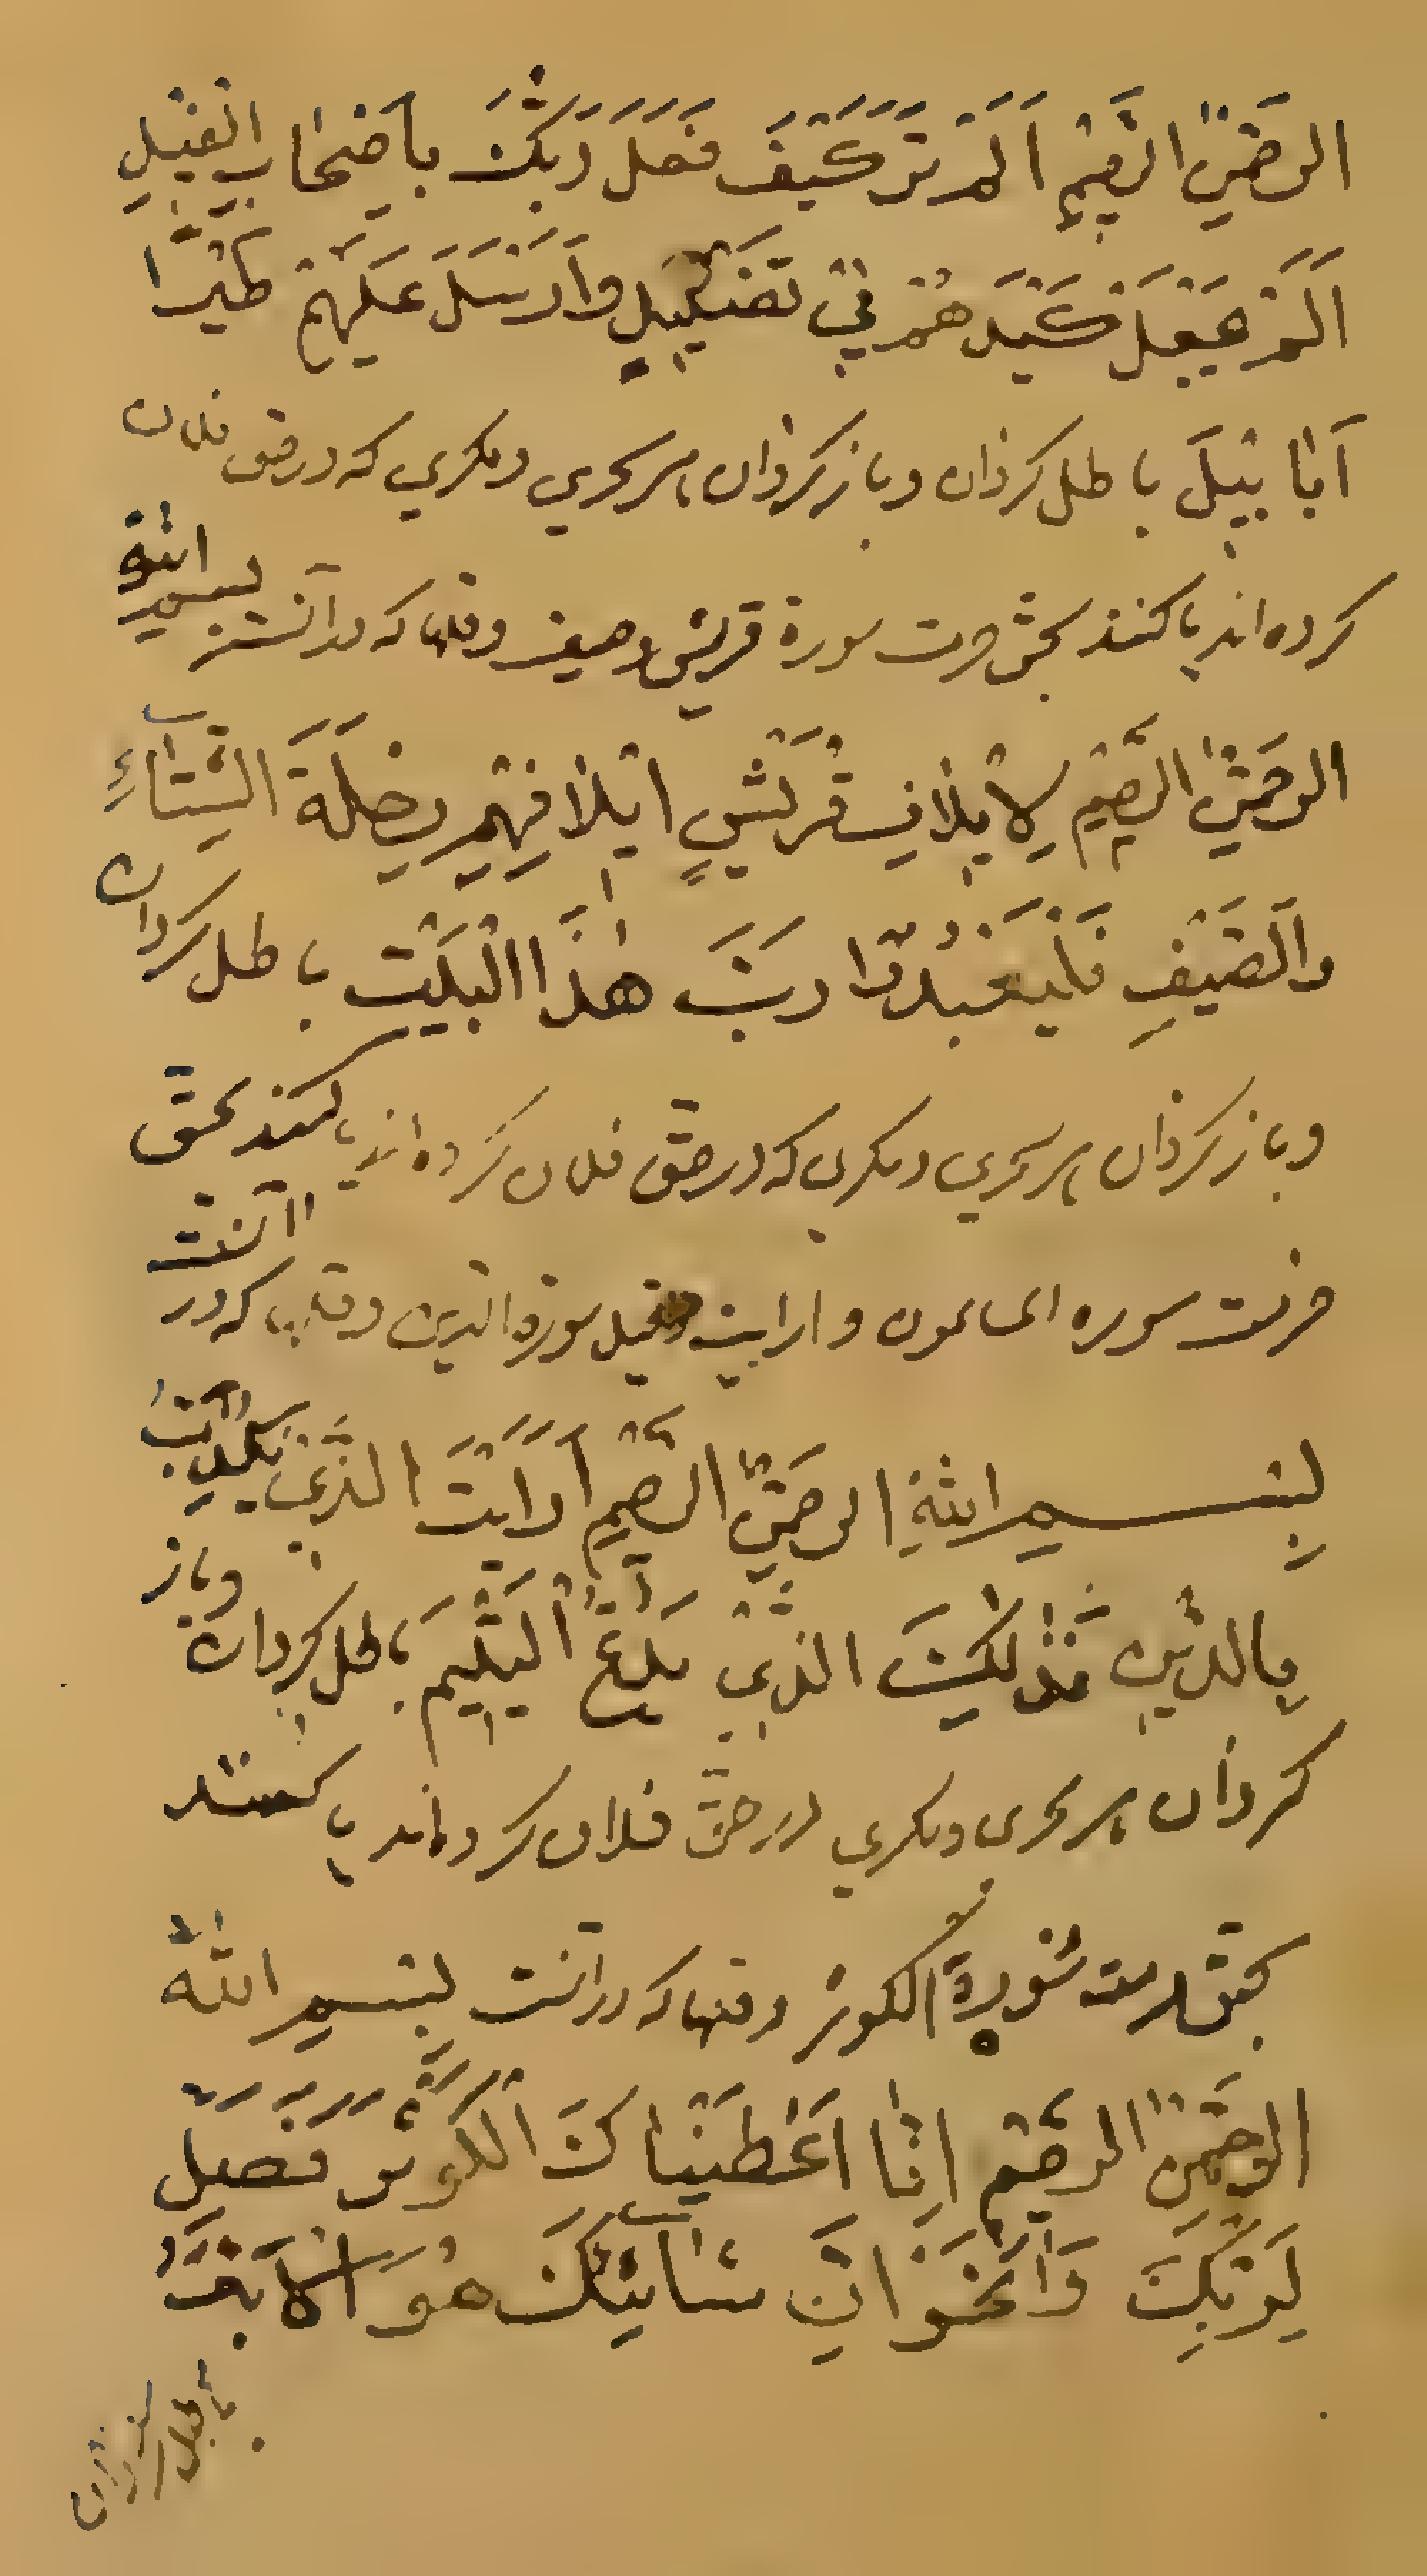 الرحمن الرَّحِيمِ اَلَمْ تَرَ كَيْفَ فَعَلَ رَبُّكَ بِاَصْحَابِ الْفِيْلِ
اَلَمْ يَجْعَلْ كَيْدَ هُمْ فِيْ تَضْلِيْلٍ وَاَرْسَلَ عَلَيْهِمْ طَيْرًا
اَبَا بِيْلَ باطل کردان و باز کردان هر سحری و مکری که در حق فلان
کرده اند یا کنند بحق حرمت سورة قریش و صیف و که در آنست بسم الله
الرحمن الرَّحِيمِ لِاِيْلَافِ قُرَيْشٍ اِيْلَافِهِمْ رِحْلَةَ الشِّتَآءِ
وَالصَّيْفِ فَلْيَعْبُدُوْا رَبَّ هٰذَا الْبَيْت باطل کردان
و باز کردان هر سحری و مکری که در حق فلان کرده اند یا کنند بحق
حرمت سوره الماعون و ارایت سورة الدین و که در آنست
بِسْمِ اللهِ الرحمن الرَّحِيمِ اَرَاَيْتَ الَّذِيْ يُكَذِّبُ
بِالدِّيْنِ فَذٰلِكَ الَّذِيْ يَدُعُّ الْيَتِيْمَ باطل کردان و باز
کردان هر سحری و مکری در حق فلان کرده اند یا کنند
بحق حرمت سُوْرَةُ الکوثر و که در آنست بِسْمِ اللهِ
الرحمن الرحيم اِنَّا اَعْطَيْنَاكَ الْكَوْثَرَ فَصَلِّ
لِرَبِّكَ وَانْحَرْ اِنَّ شَانِئَكَ هُوَ الْاَبْتَرُ
باطل کردان